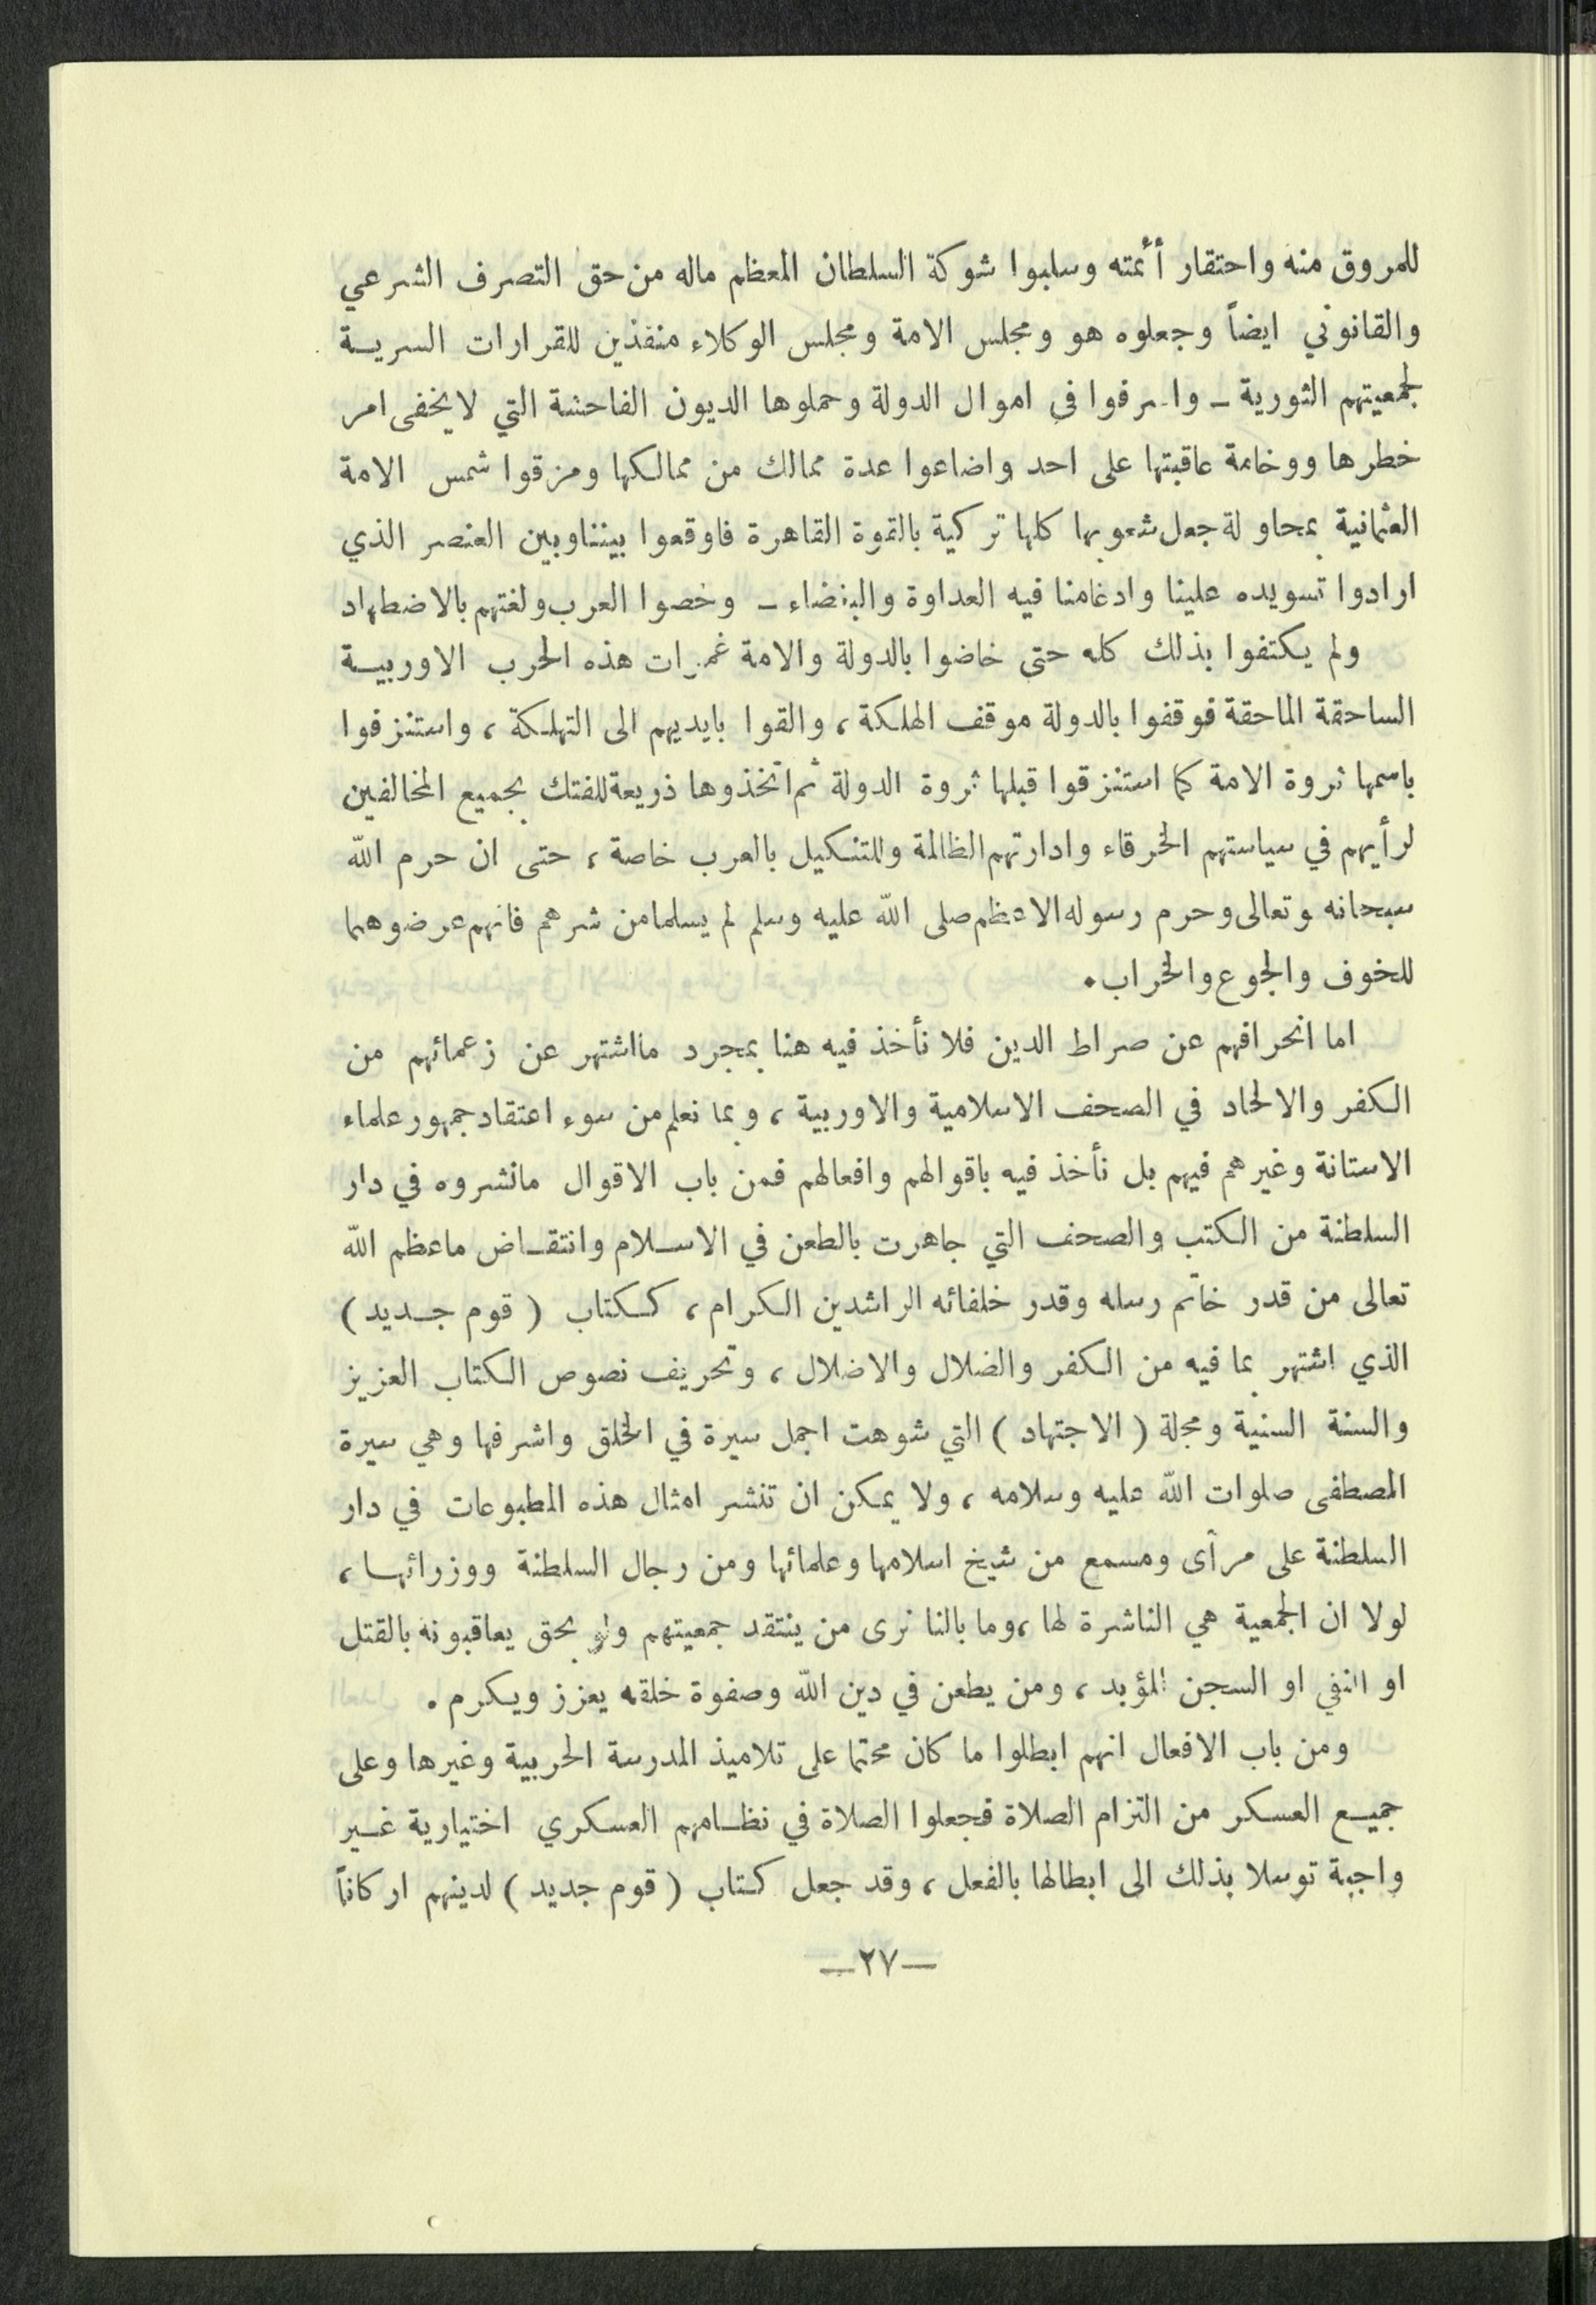 للمروق منه واحتقار أئمته وسلبوا شوكة السلطان المعظم ماله من حق التصرف الشرعي
والقانوني ايضاً وجعلوه هو ومجلس الامة ومجلس الوكلاء منفذين للقرارات السرية
لجمعيتهم الثورية ـ واسرفوا في اموال الدولة وحملوها الديون الفاحشة التي لا يخفى امر
خطرها ووخامة عاقبتها على احد واضاعوا عدة ممالك من ممالكها ومزقوا شمس الامة
العثمانية بمحاولة جعل شعوبها كلها تركية بالقوة القاهرة فاوقعوا بيننا وبين العنصر الذي
ارادوا تسويده علينا وادغامنا فيه العداوة والبغضاء ـ وخصوا العرب ولغتهم بالاضطهاد
ولم يكتفوا بذلك كله حتى خاضوا بالدولة والامة غمرات هذه الحرب الاوربية
الساحقة الماحقة فوقفوا بالدولة موقف الهلكة ، والقوا بايديهم الى التهلكة ، واستنزفوا
باسمها ثروة الامة كما استنزقوا قبلها ثروة الدولة ثم اتخذوها ذريعة للفتك بجميع المخالفين
لرأيهم في سياستهم الخرقاء وادارتهم الظالمة وللتنكيل بالعرب خاصة ، حتى ان حرم الله
سبحانه وتعالى وحرم رسوله الاعظم صلى الله عليه وسلم لم يسلما من شرهم فانهم عرضوهما
للخوف والجوع والخراب .
اما انحرافهم عن صراط الدين فلا نأخذ فيه هنا بمجرد ما اشتهر عن زعمائهم من
الكفر والالحاد في الصحف الاسلامية والاوربية ، وبما نعلم من سوء اعتقاد جمهور علماء
الاستانة وغيرهم فيهم بل نأخذ فيه باقوالهم وافعالهم فمن باب الاقوال مانشروه في دار
السلطنة من الكتب والصحف التي جاهرت بالطعن في الاسلام وانتقاض ماعظم الله
تعالى من قدر خاتم رسله وقدر خلفائه الراشدين الكرام ، ككتاب ( قوم جديد )
الذي اشتهر بما فيه من الكفر والضلال والاضلال ، وتحريف نصوص الكتاب العزيز
والسنة السنية ومجلة ( الاجتهاد ) التي شوهت اجمل سيرة في الخلق واشرفها وهي سيرة
المصطفى صلوات الله عليه وسلامه ، ولا يمكن ان تنشر امثال هذه المطبوعات في دار
السلطنة على مرأى ومسمع من شيخ اسلامها وعلمائها ومن رجال السلطنة ووزرائها ،
لولا ان الجمعية هي الناشرة لها ، وما بالنا نرى من ينتقد جمعيتهم ولو بحق يعاقبونه بالقتل
او النفي او السجن المؤبد ، ومن يطعن في دين الله وصفوة خلقه يعزز ويكرم .
ومن باب الافعال انهم ابطلوا ما كان محتما على تلاميذ المدرسة الحربية وغيرها وعلى
جميع العسكر من التزام الصلاة فجعلوا الصلاة في نظامهم العسكري اختيارية غير
واجبة توسلا بذلك الى ابطالها بالفعل ، وقد جعل كتاب ( قوم جديد ) لدينهم اركاناً
—٢٧—